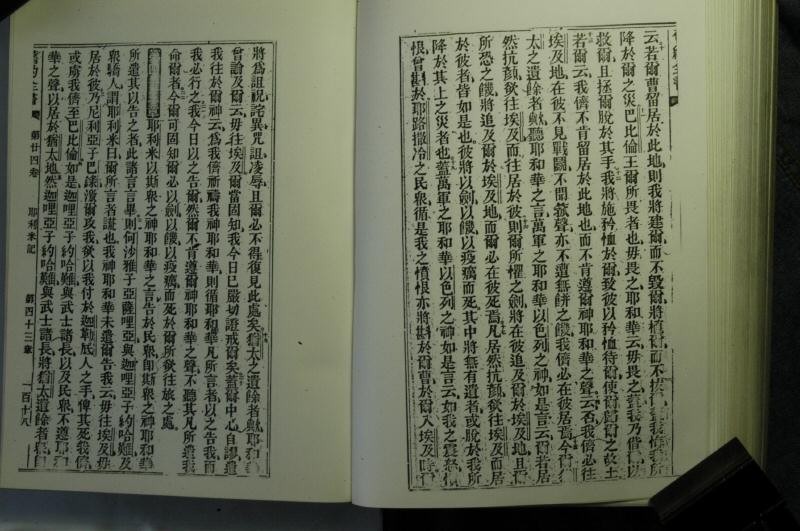 云若爾曹留居於此地則我將建爾而不毀爾將植爾而不拔蓋我悔我所
降於爾之災巴比倫王爾所畏者也毋畏之耶和華云毋畏之蓋我乃偕爾以
救爾且拯爾脫於其手我將施矜恤於爾致彼以矜恤待爾使爾歸爾之故土
若爾云我儕不肯留居於此地也而不肯遵爾神耶和華之聲云否我儕必往
埃及地在彼不見戰鬭不聞號聲亦不遭無餅之饑我儕必在彼居焉今
太之遺餘者歟聽耶和華之言萬軍之耶和華以色列之神如是言云爾若居
然抗顏欲往埃及而往居於彼則爾所懼之劍將在彼追及爾於埃及地且爾
所恐之饑將追及爾於埃及地而爾必在彼死焉凡居然抗顏欲往埃及而居
於彼者皆如是也彼將以劍以饑以疫癘而死其中將無有遺者或脫於我所
降於其上之災者也蓋萬軍之耶和華以色列之神如是言云如我之震怒
恨曾斟於耶路撒冷之民衆循是我之憤恨亦將斟於爾曹於爾入埃及時
將爲詛祝詫異咒詛凌辱且爾必不得復見此處矣猶太之遺餘者歟耶和華
曾論及爾云毋往埃及爾當固知我今日已嚴切證戒爾矣蓋爾中心自謬遣
我往於爾神云爲我儕祈禱我神耶和華則循耶和華凡所言者以之告我而
我必行之我今日以之告爾然爾不肯遵爾神耶和華之聲不聽其凡所遣我
命爾者今爾可固知爾必以劍以饑以疫癘而死於爾所欲往旅之處
耶利米以斯衆之神耶和華之言告於民衆卽斯衆之神耶和華
所遣其以告之者此諸言言畢則何沙雅子亞薩哩亞與迦哩亞子約哈難及
衆驕人謂耶利米曰爾所言者謊也我神耶和華未遣爾告我云往埃及毋
居於彼乃尼利亞子巴錄濆爾攻我欲以我付於迦勒底人之手俾其死我儕
或虜我儕至巴比倫如是迦哩亞子約哈難與武士諸長以及民衆不遵耶和
華之聲以居於猶太地然迦哩亞子約哈難與武士諸長將猶太遺餘者
舊約全書 第廿四卷 耶利米記 第四十三章 一百十八